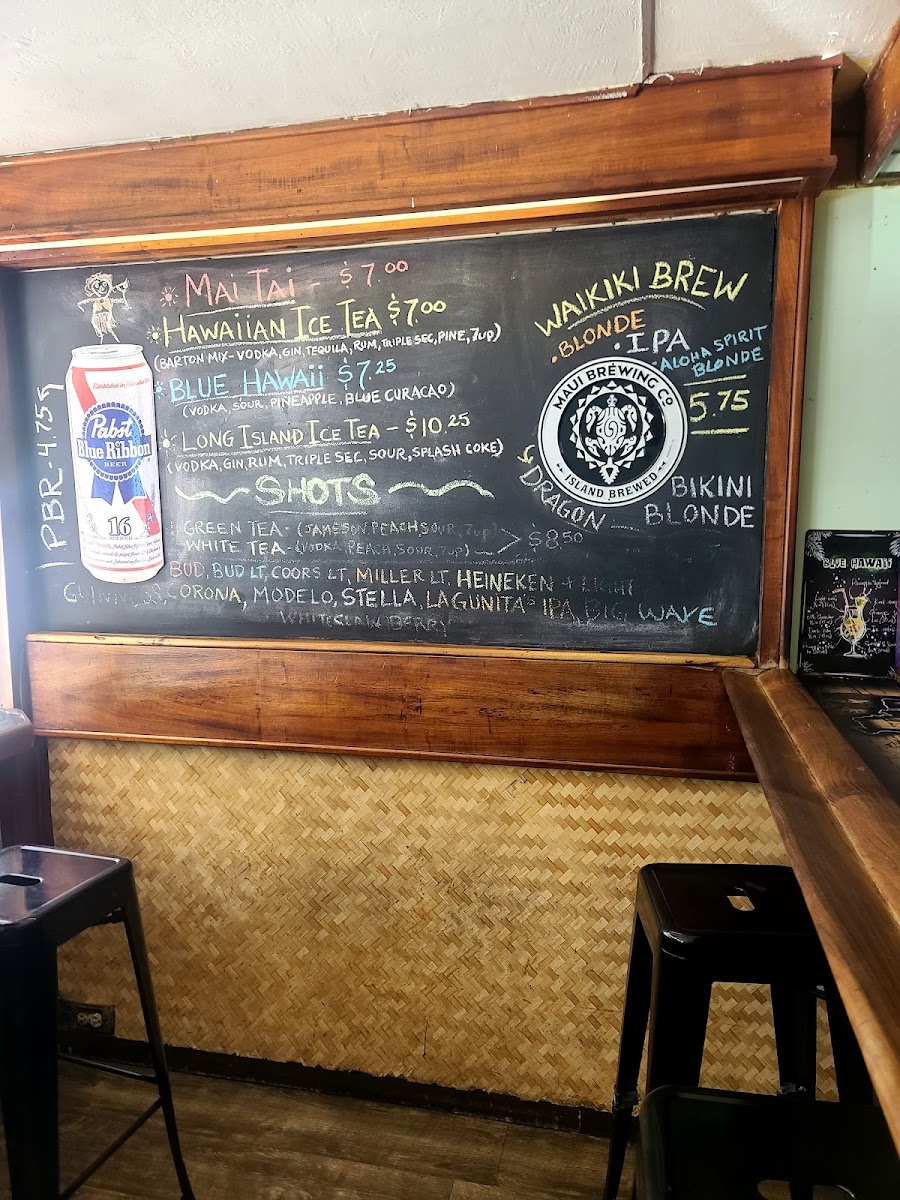 MAI TAI - $7.00
HAWAIIAN ICE TEA $7.00
(BARTON MIX-VODKA, GIN, TEQUILA, RUM, TRIPLE SEC, PINE, 7UP)
BLUE HAWAII $7.25
(VODKA, SOUR, PINEAPPLE, BLUE CURACAO)
LONG ISLAND ICE TEA - $10.25
(VODKA, GIN, RUM, TRIPLE SEC, SOUR, SPLASH COKE)
SHOTS
GREEN TEA- (JAMESON PEACH SOUR, 7UP)
WHITE TEA- (VODKA PEACH, SOUR, 7UP)
$8.50
BUD, BUD LT, COORS LT, MILLER LT, HEINEKEN + LIGHT
GUINNESS, CORONA, MODELO, STELLA, LAGUNITAS IPA, BIG WAVE
WHITECLAW BERRY
PBR-4.75
Pabst
Blue Ribbon
BEER
16
WAIKIKI BREW
BLONDE
IPA
ALOHA SPIRIT
BLONDE
5.75
MAUI BREWING CO
ISLAND BREWED
DRAGON
BIKINI
BLONDE
BLUE HAWAII